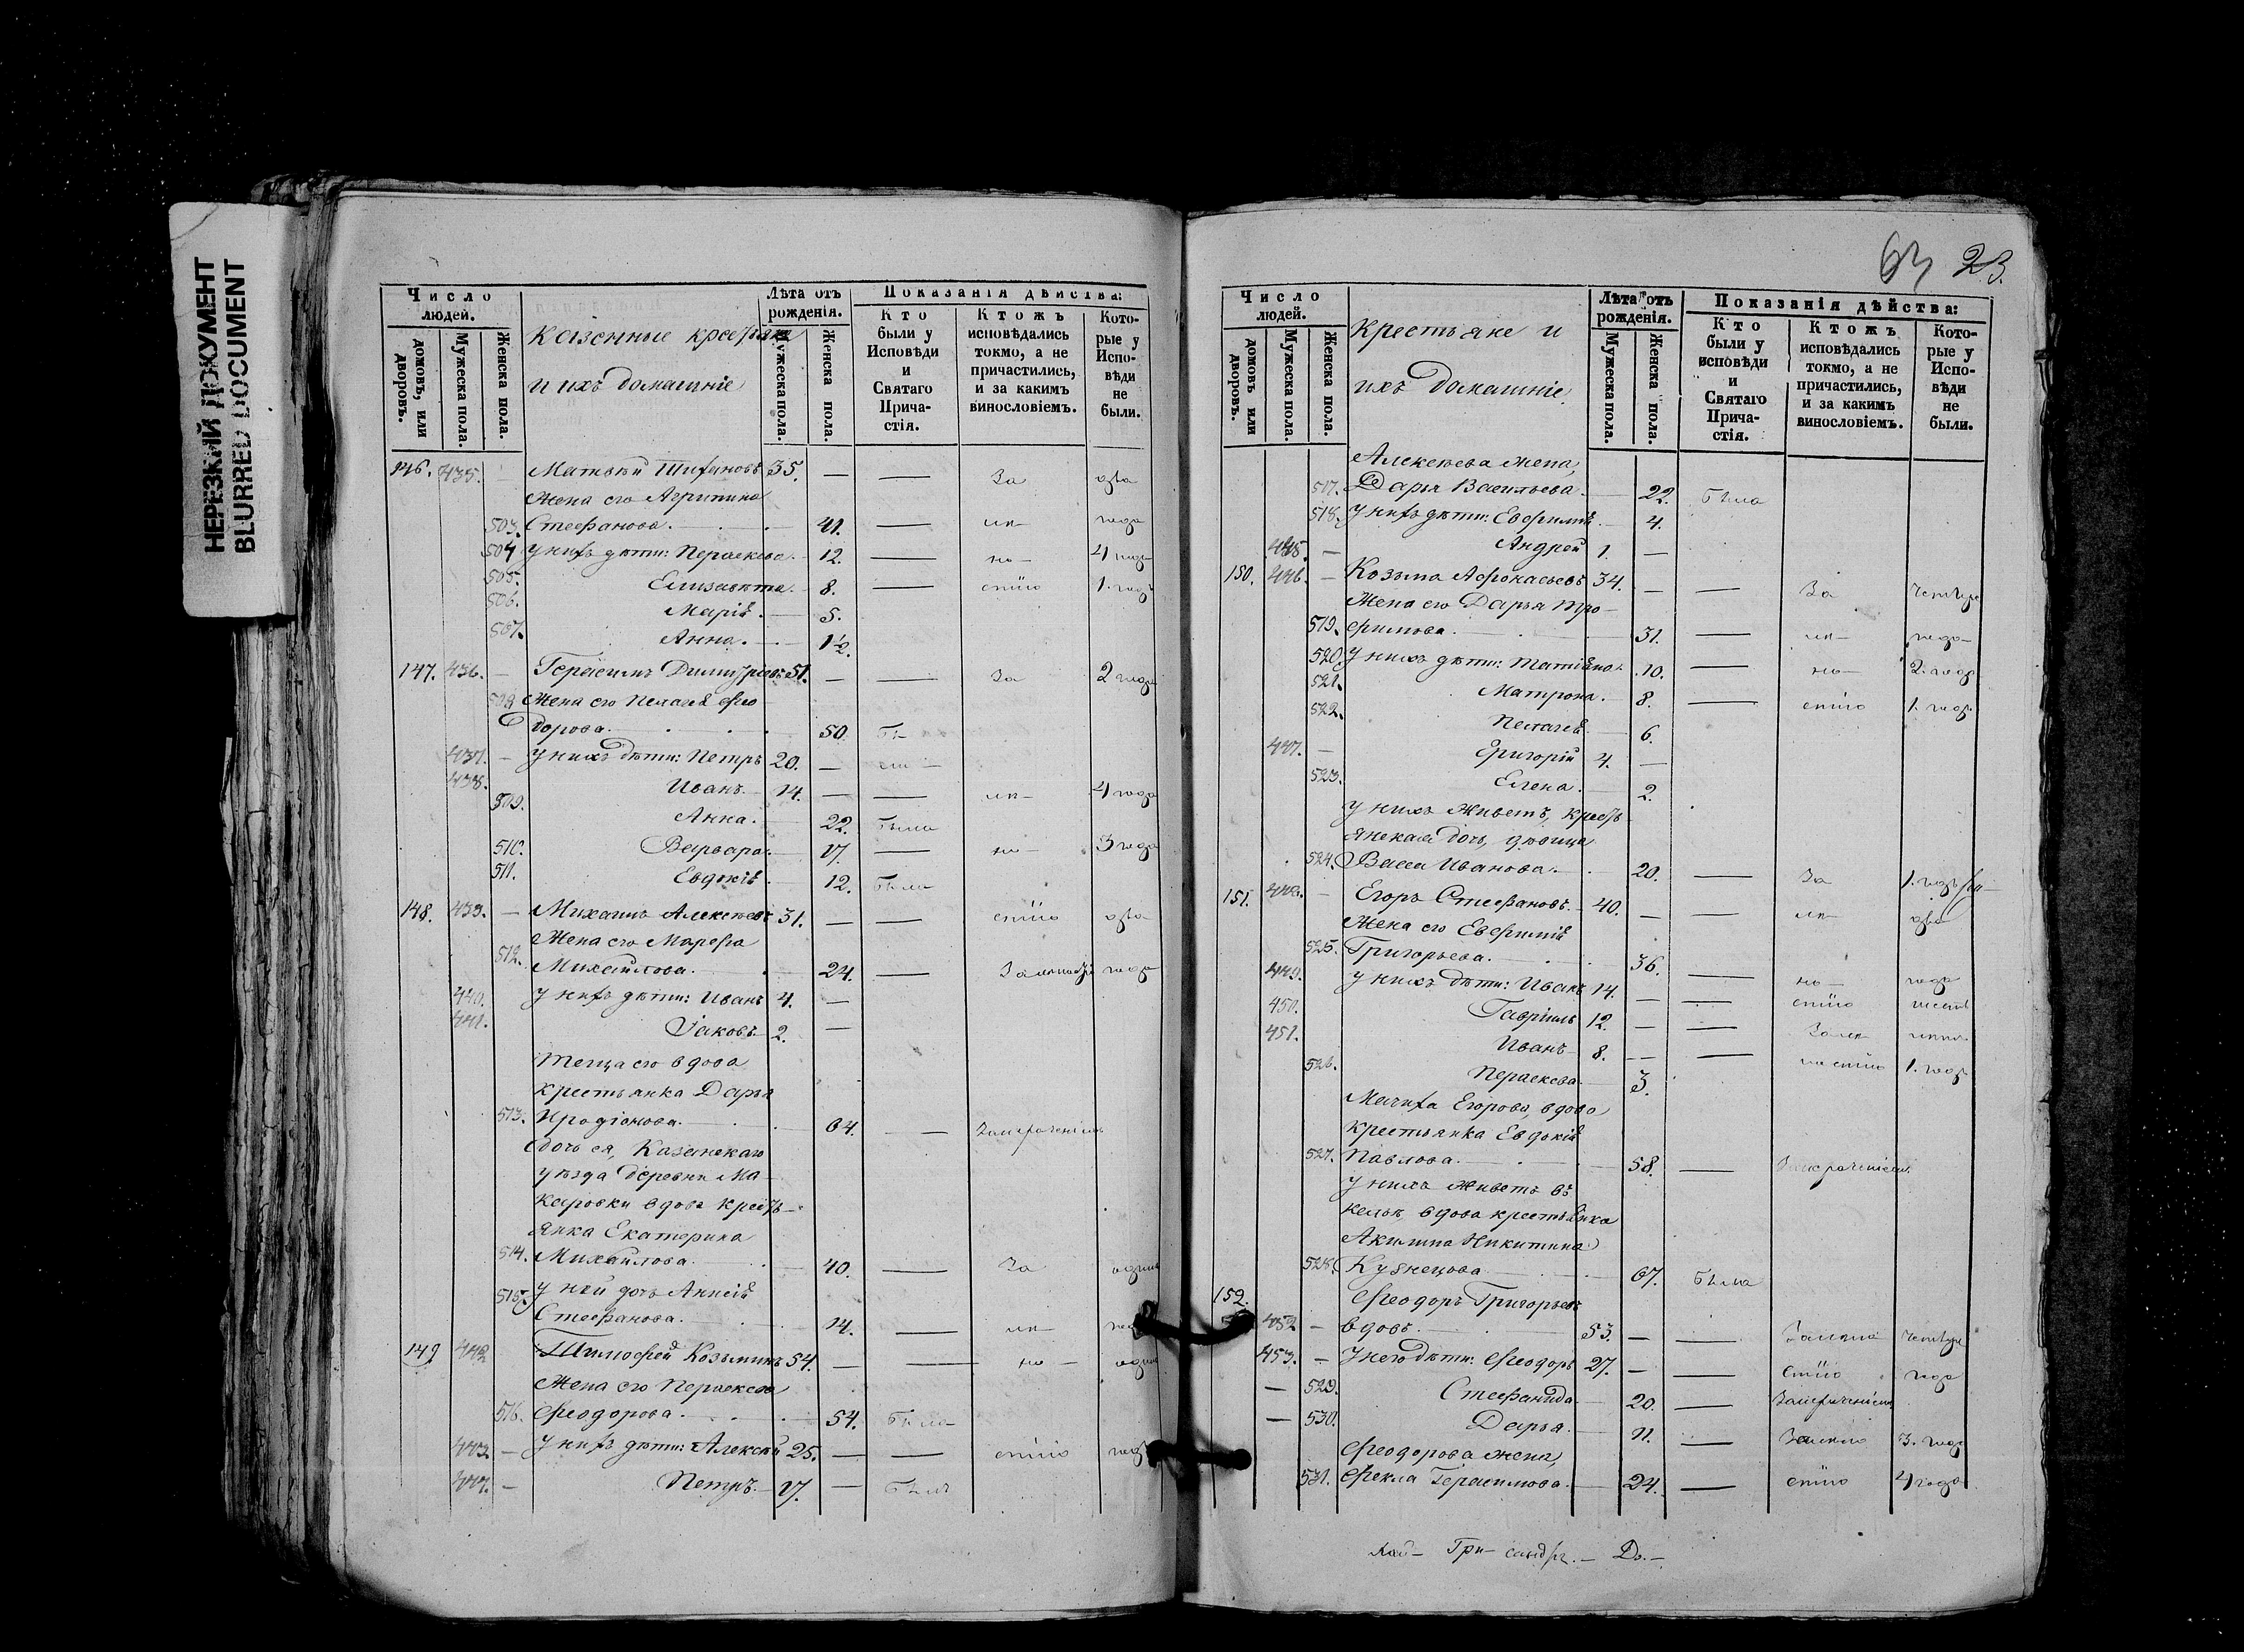 НЕРЕЗКИЙ ДОКУМЕНТ
BLURRED DOCUMENT
Число людей.
домовъ, или дворовъ.
Мужеска пола.
Женска пола.
Казенные крестьяне
и ихъ домашніе
Лѣта отъ рожденія.
Мужеска пола.
Женска пола.
Показанія дѣйства:
Кто были у Исповѣди и Святаго Прича-стія.
Ктожъ исповѣдались токмо, а не причастились, и за какимъ винословіемъ.
Кото-рые у Испо-вѣди не были.
146. 435. — Матвѣй 35. — — За два
Жена его Агрипина
503. Стефанова. — 41. — лѣ- года
504 У нихъ дѣти: Параскева — 12. — но- 4 года
505. Елизавета — 8. — стію 1. годъ
506. Марія — 5.
507. Анна — 1½.
147. 436. — Герасимъ Димитріевъ 51. — — За 2 года
508 Жена его Пелагея Ѳео
дорова. — 50. Бы-
437. — У нихъ дѣти: Петръ 20. — ли —
438. Иванъ — 14. — — лѣ- 4 года
509. Анна. — 22. Была
510. Варвара — 17. — но- 3 года
511. Евдокія — 12. Была
148. 439. — Михаилъ Алексѣевъ 31. — — стію два
Жена его Марфа
512. Михайлова. — 24. — года
440. У нихъ дѣти: Иванъ 4. —
441. Іаковъ 2. —
Теща его вдова
крестьянка Дарья
513. Иродіонова. — 64. —
дочь ея, Казанскаго
уѣзда деревни Ма-
каровки вдова кресть-
янка Екатерина
514. Михайлова — 40. — За одинъ
515. У ней дочь Анисія
Стефанова. — 14. — лѣ-
149 442 Тимофей Козьминъ 54. — — но — одинъ
Жена его Параскева
516. Ѳеодорова. — 54. Была
443. — У нихъ дѣти: Алексѣй 25. — — стію годъ
444. — Петръ — 17. — Былъ
63 23.
Число людей.
домовъ или дворовъ.
Мужеска пола.
Женска пола.
Крестьяне и
ихъ домашніе.
Лѣта отъ рожденія.
Мужеска пола.
Женска пола.
Показанія дѣйства:
Кто были у исповѣди и Святаго Прича-стія.
Ктожъ исповѣдались токмо, а не причастились, и за какимъ винословіемъ.
Кото-рые у Испо-вѣди не были.
Алексѣева жена,
517. Дарья Васильева — 22. Была
518. У нихъ дѣти: Евфимія — 4.
445. — Андрей 1. —
150. 446. — Козьма Афонасьевъ 34. — — За четыре
Жена его Дарья Тро-
519. фимова. — 31. — лѣ- года
520. У нихъ дѣти: Татіяна 10. — но- 2. года
521. Матрона. — 8. — стію 1. годъ
522. Пелагея — 6.
447. — Григорій 4. —
523. Елена — 2.
У нихъ живетъ, кресть
янская дочь, дѣвица
524. Васса Иванова — 20. — За 1. годъ
151. 448. — Егоръ Стефановъ — 40. — — лѣ- два
Жена его Евфимія
525. Григорьева. — 36. — но- года
449. У нихъ дѣти: Иванъ 14. — — стію
450. Гавріилъ 12. — —
451. Иванъ — 8. — — 1. годъ
526. Параскева — 3.
Мачиха Егорова, вдова
крестьянка Евдокія
527. Павлова. — 58. —
У нихъ живетъ въ
кельѣ, вдова крестьянка
Акилина Никитина
528. Кузнецова — 67. Была
152. Ѳеодоръ Григорьевъ
452 — вдовъ. — 53 — — четыре
453. — У него дѣти: Ѳеодоръ 27. — — стію года
— 529. Стефанида — 20. —
— 530. Дарья. — 11. — 3. года
Ѳеодорова жена,
531. Ѳекла Герасимова. — 24. — стію 4 года